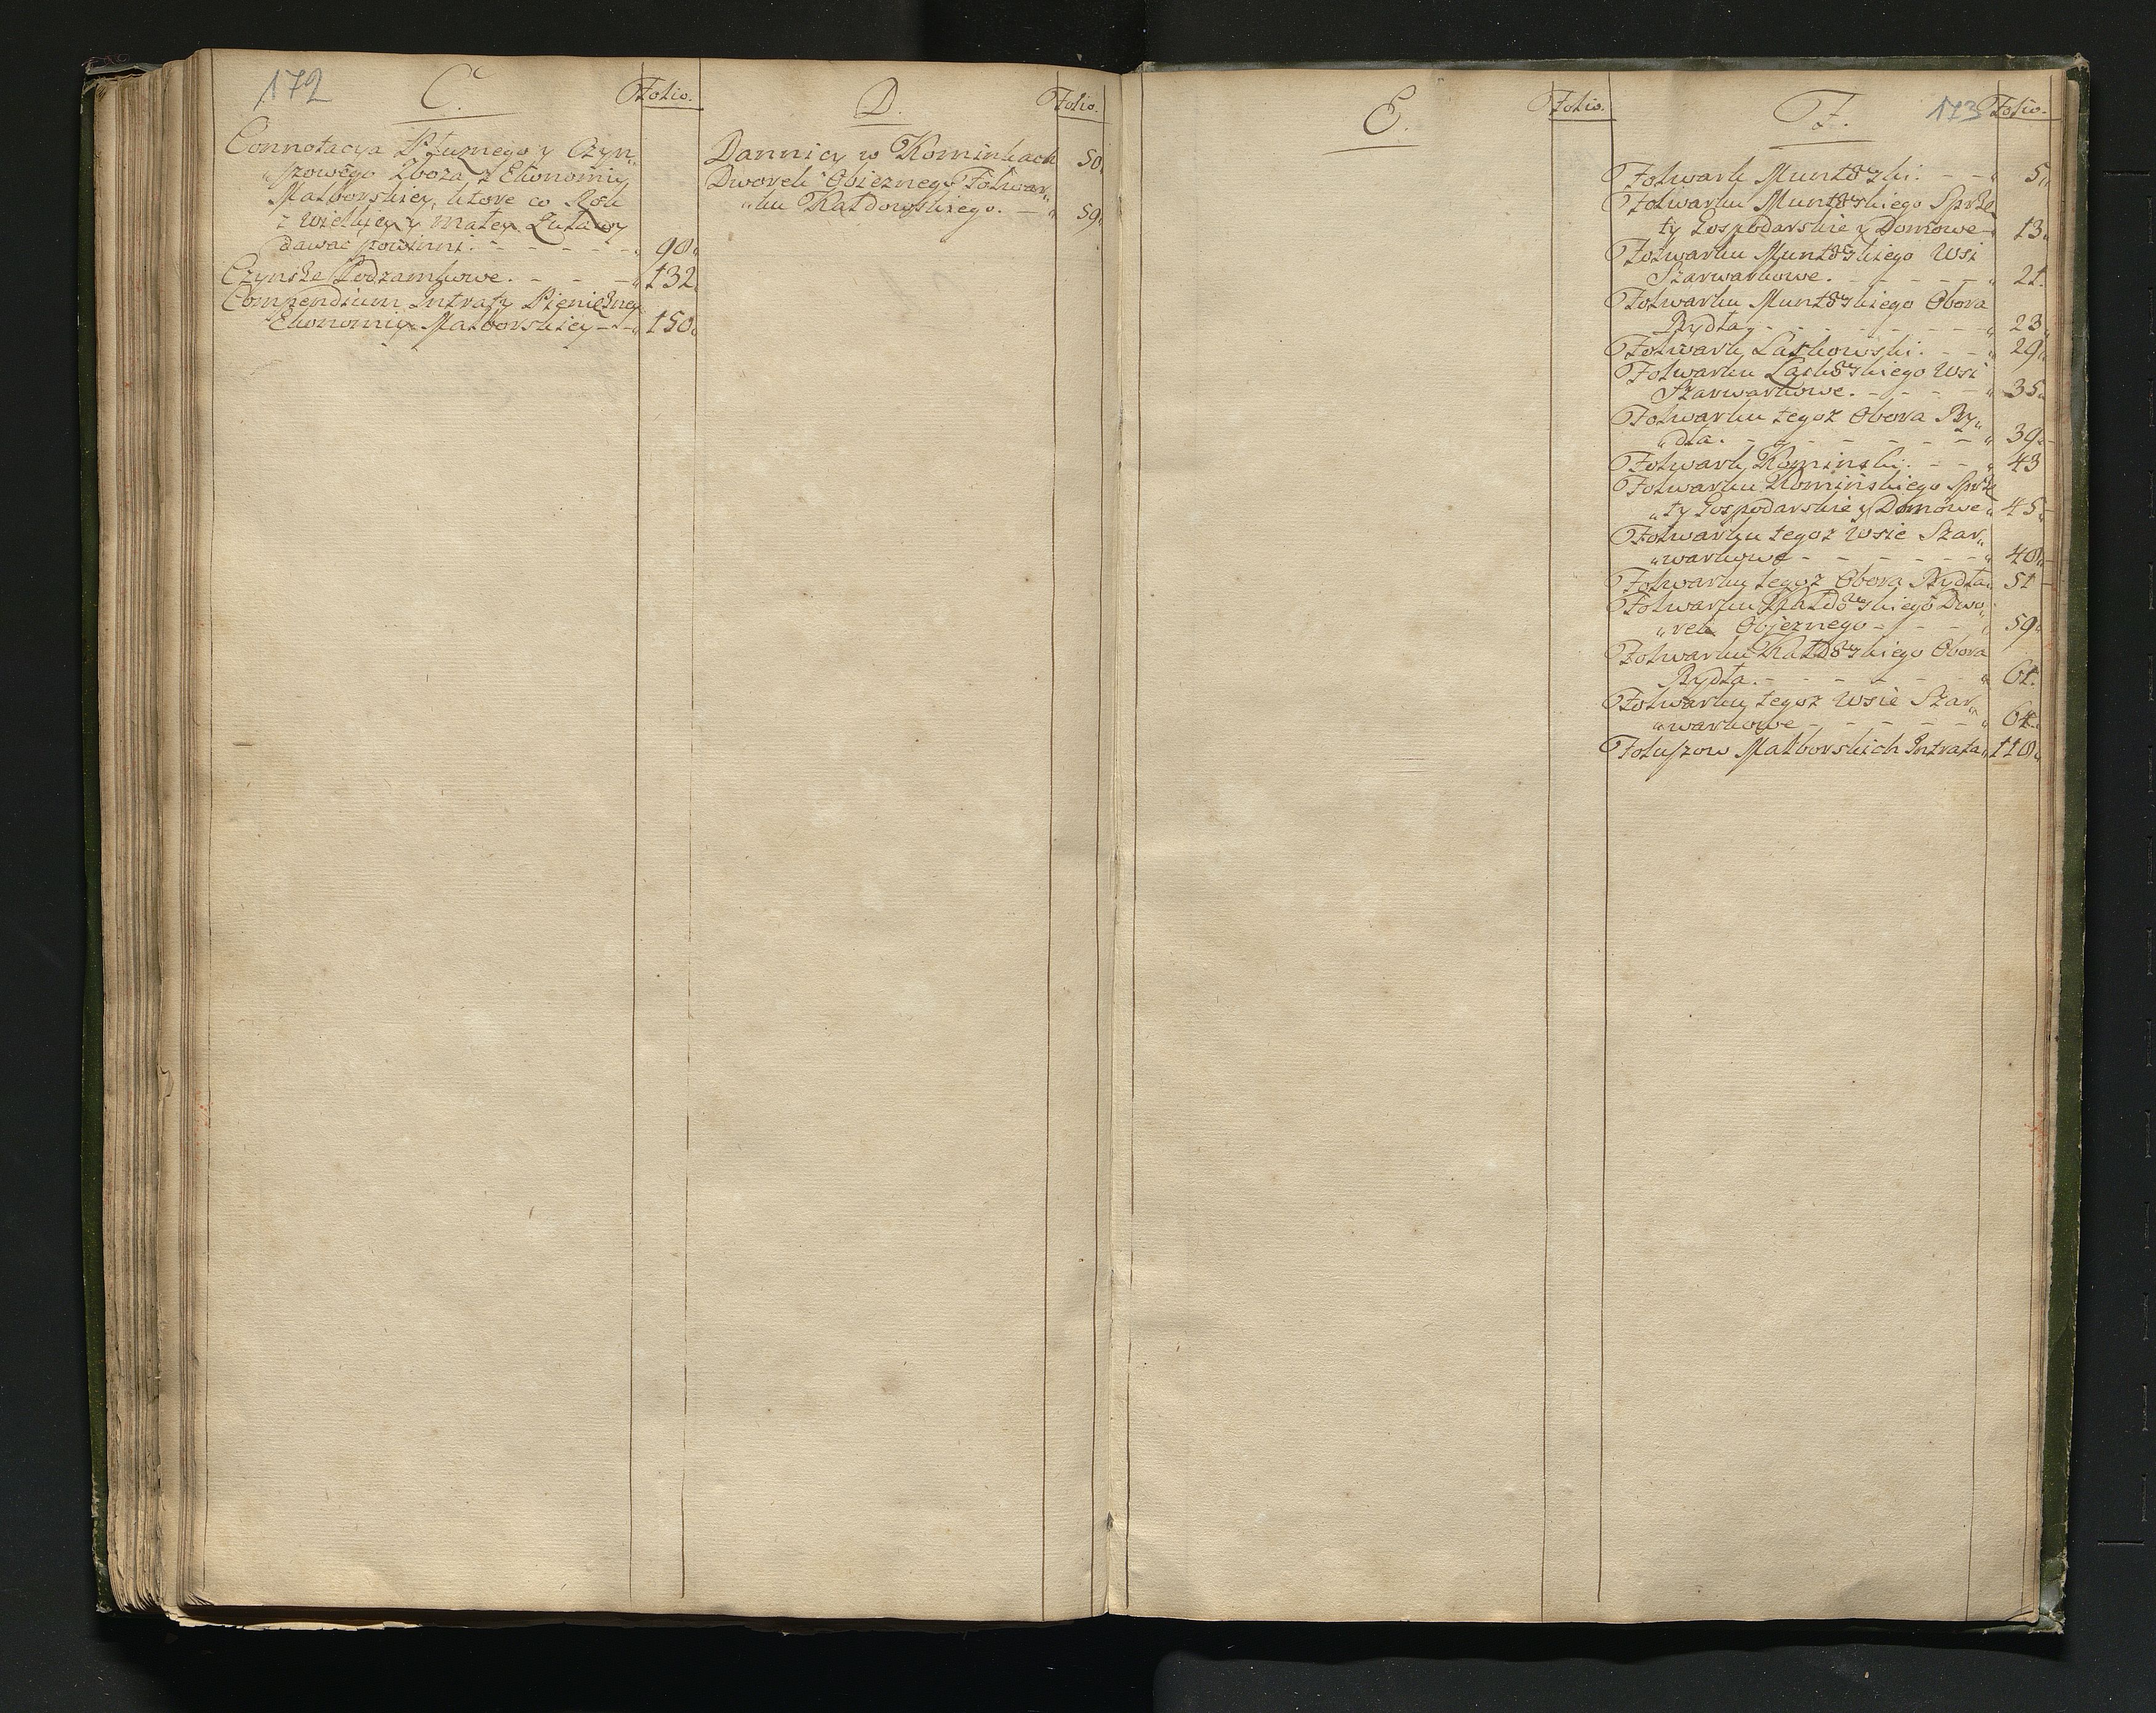 172
C.
Folio.
Connotacya Płużnego y Czyn„
„szowego Zboża z Ekonomiy
Malborskiey, ktore co Rok
z Wielkiey y małey Żuławy
dawać powinni. - - - - - „ 90„
Czynsze Podzamkowe. - - - „ 132„
Compendium Intraty Pieniężney
Ekonomiy Malborskiey - - „ 150„
D.
Folio.
Dannicy w Kominkach 50„
Dworek Obieznego Folwar„
„ku Kałdowskiego. - „ 59„
E.
Folio.
F.
173
Folio.
Folwark Muntowski. - - „ 5„
Folwarku Muntowskiego Sprzę
ty Gospodarskie y Domowe „ 13„
Folwarku Muntowskiego Wsi
Szarwarkowe. - - - - - „ 21.
Folwarku Muntowskiego Obora
Bydła, - - - - - - - „ 23„
Folwark Laskowski. - - „ 29„
Folwarku Laskowskiego Wsi
Szarwarkowe. - - - - „ 35„
Folwarku tegoz Obora By„
„dła. - - - - - - - „ 39„
Folwark Kominski. - - „ 43
Folwarku Kominskiego Sprzę
„ty Gospodarskie y Domowe „ 45„
Folwarku tegoz Wsie Szar„
„warkowe - - - - - - „ 48„
Folwarku tegoz Obora Bydła „ 51
Folwarku Kałdowskiego Dwo„
„rek Objeznego - - - - „ 59„
Folwarku Kałdowskiego Obora
Bydła. - - - - - - „ 61.
Folwarku tegoz Wsie Szar„
„warkowe - - - - - „ 64„
Foluszow Malborskich Intrata „ 110„